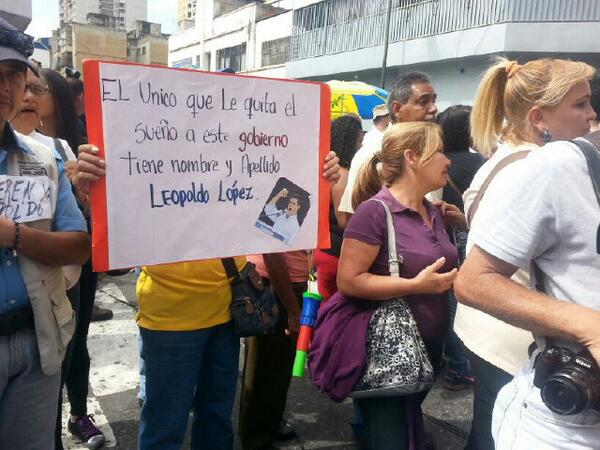 EL Unico que Le quita el
sueño a este gobierno
Tiene nombre y Apellido
Leopoldo López.